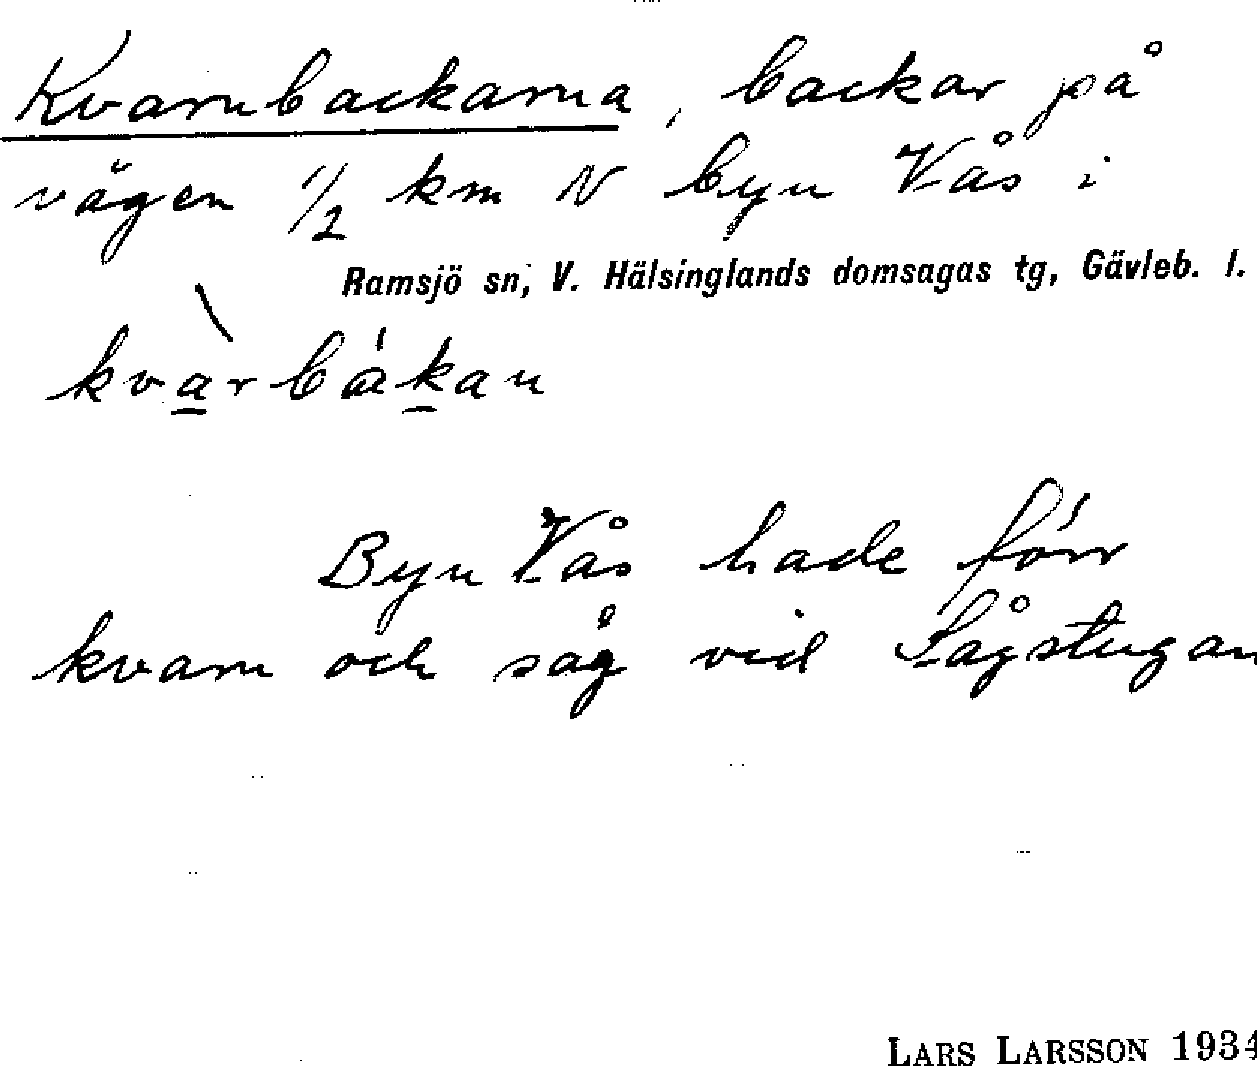 Kvarnbackarna, backar på
vägen 1/2 km N byn Vås i
Ramsjö sn, V. Hälsinglands domsagas tg, Gävleb. l.
kvarbákan
Byn Vås hade förr
kvarn och såg vid Sågstugan
LARS LARSSON 1934